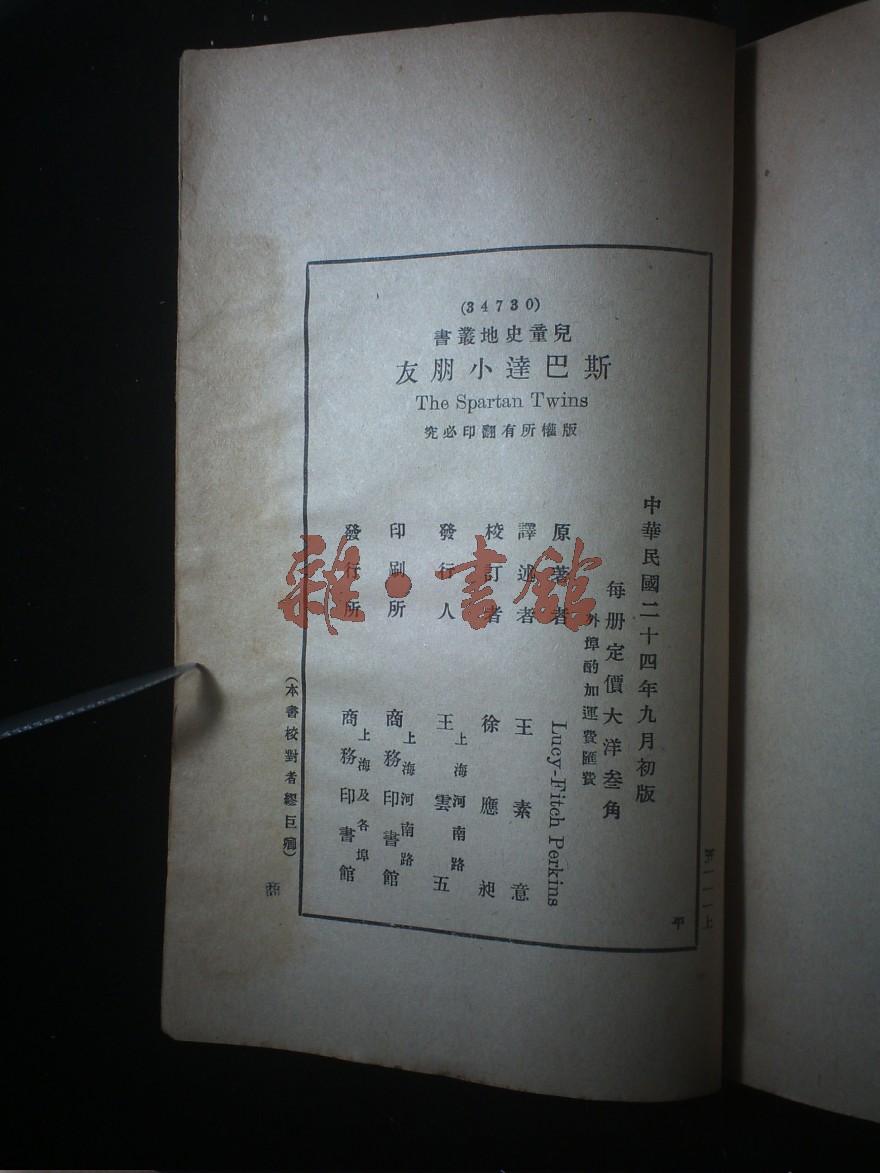 (34730)
兒童史地叢書
斯巴達小朋友
The Spartan Twins
版權所有翻印必究
中華民國二十四年九月初版
每册定價大洋叁角
外埠酌加運費匯費
原著者 Lucy-Fitch Perkins
譯述者 王素意
校訂者 徐應昶
發行人 王雲五
上海河南路
印刷所 商務印書館
上海河南路
發行所 商務印書館
上海及各埠
(本書校對者繆巨卿)
平
雜·書館